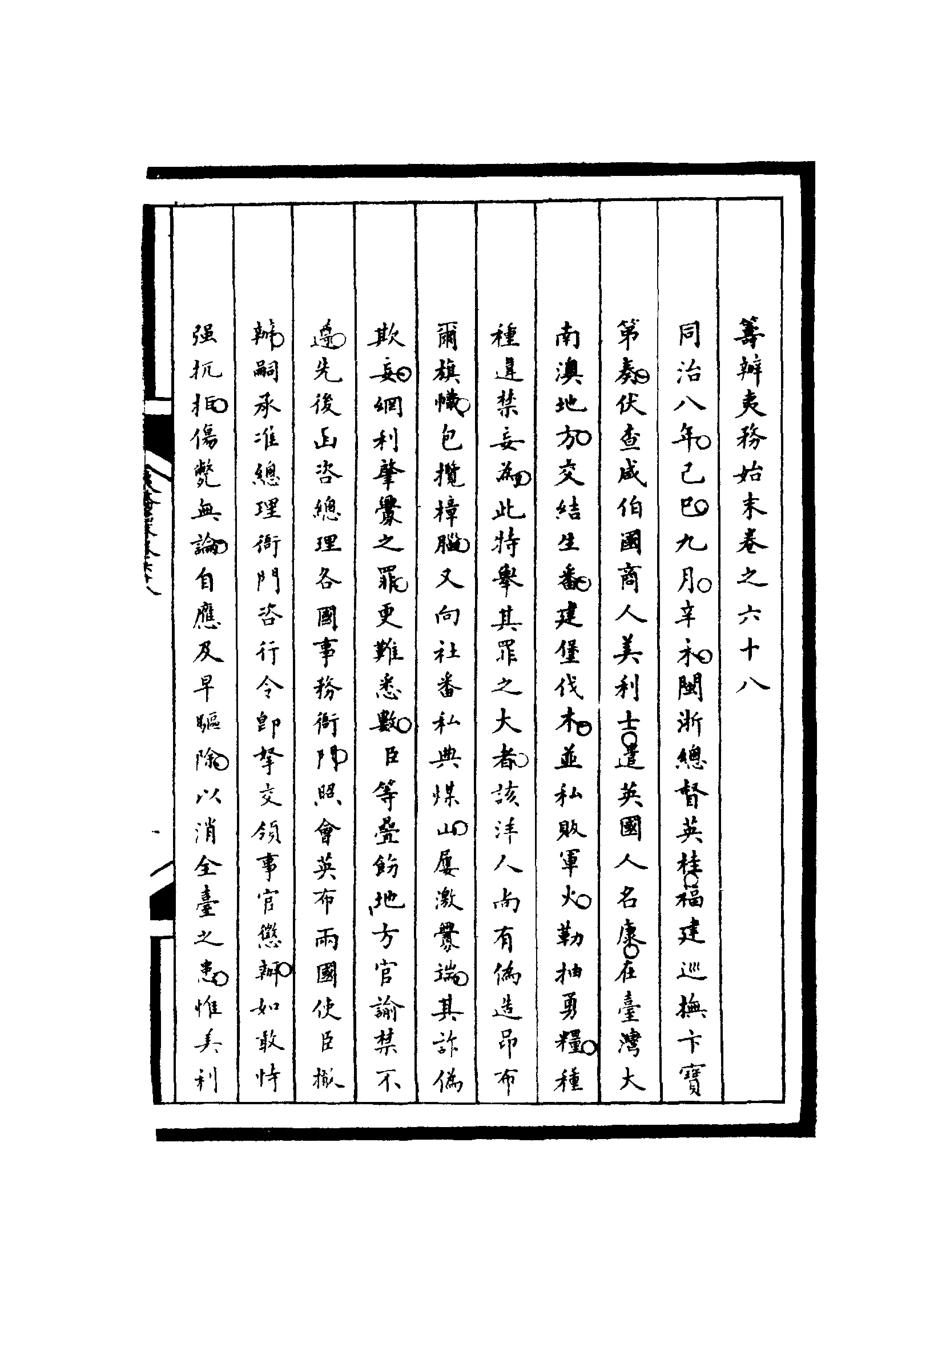 籌辦夷務始末卷之六十八
同治八年。己巳。九月。辛未。閩浙總督英桂。福建巡撫卞寶
第奏。伏查咸伯國商人美利士。遣英國人名康。在臺灣大
南澳地方。交結生番。建堡伐木。並私販軍火。勒抽勇糧。種
種違禁妄為。此特舉其罪之大者。該洋人尚有偽造昂布
爾旗幟。包攬樟腦。又向社番私典煤山。屢激釁端。其詐偽
欺妄。網利肇釁之罪。更難悉數。臣等疊飭地方官諭禁不
遵。先後函咨總理各國事務衙門。照會英布兩國使臣撤
辦。嗣承准總理衙門咨行令卽拏交領事官懲辦。如敢恃
强抗拒。傷斃無論。自應及早驅除。以消全臺之患。惟美利